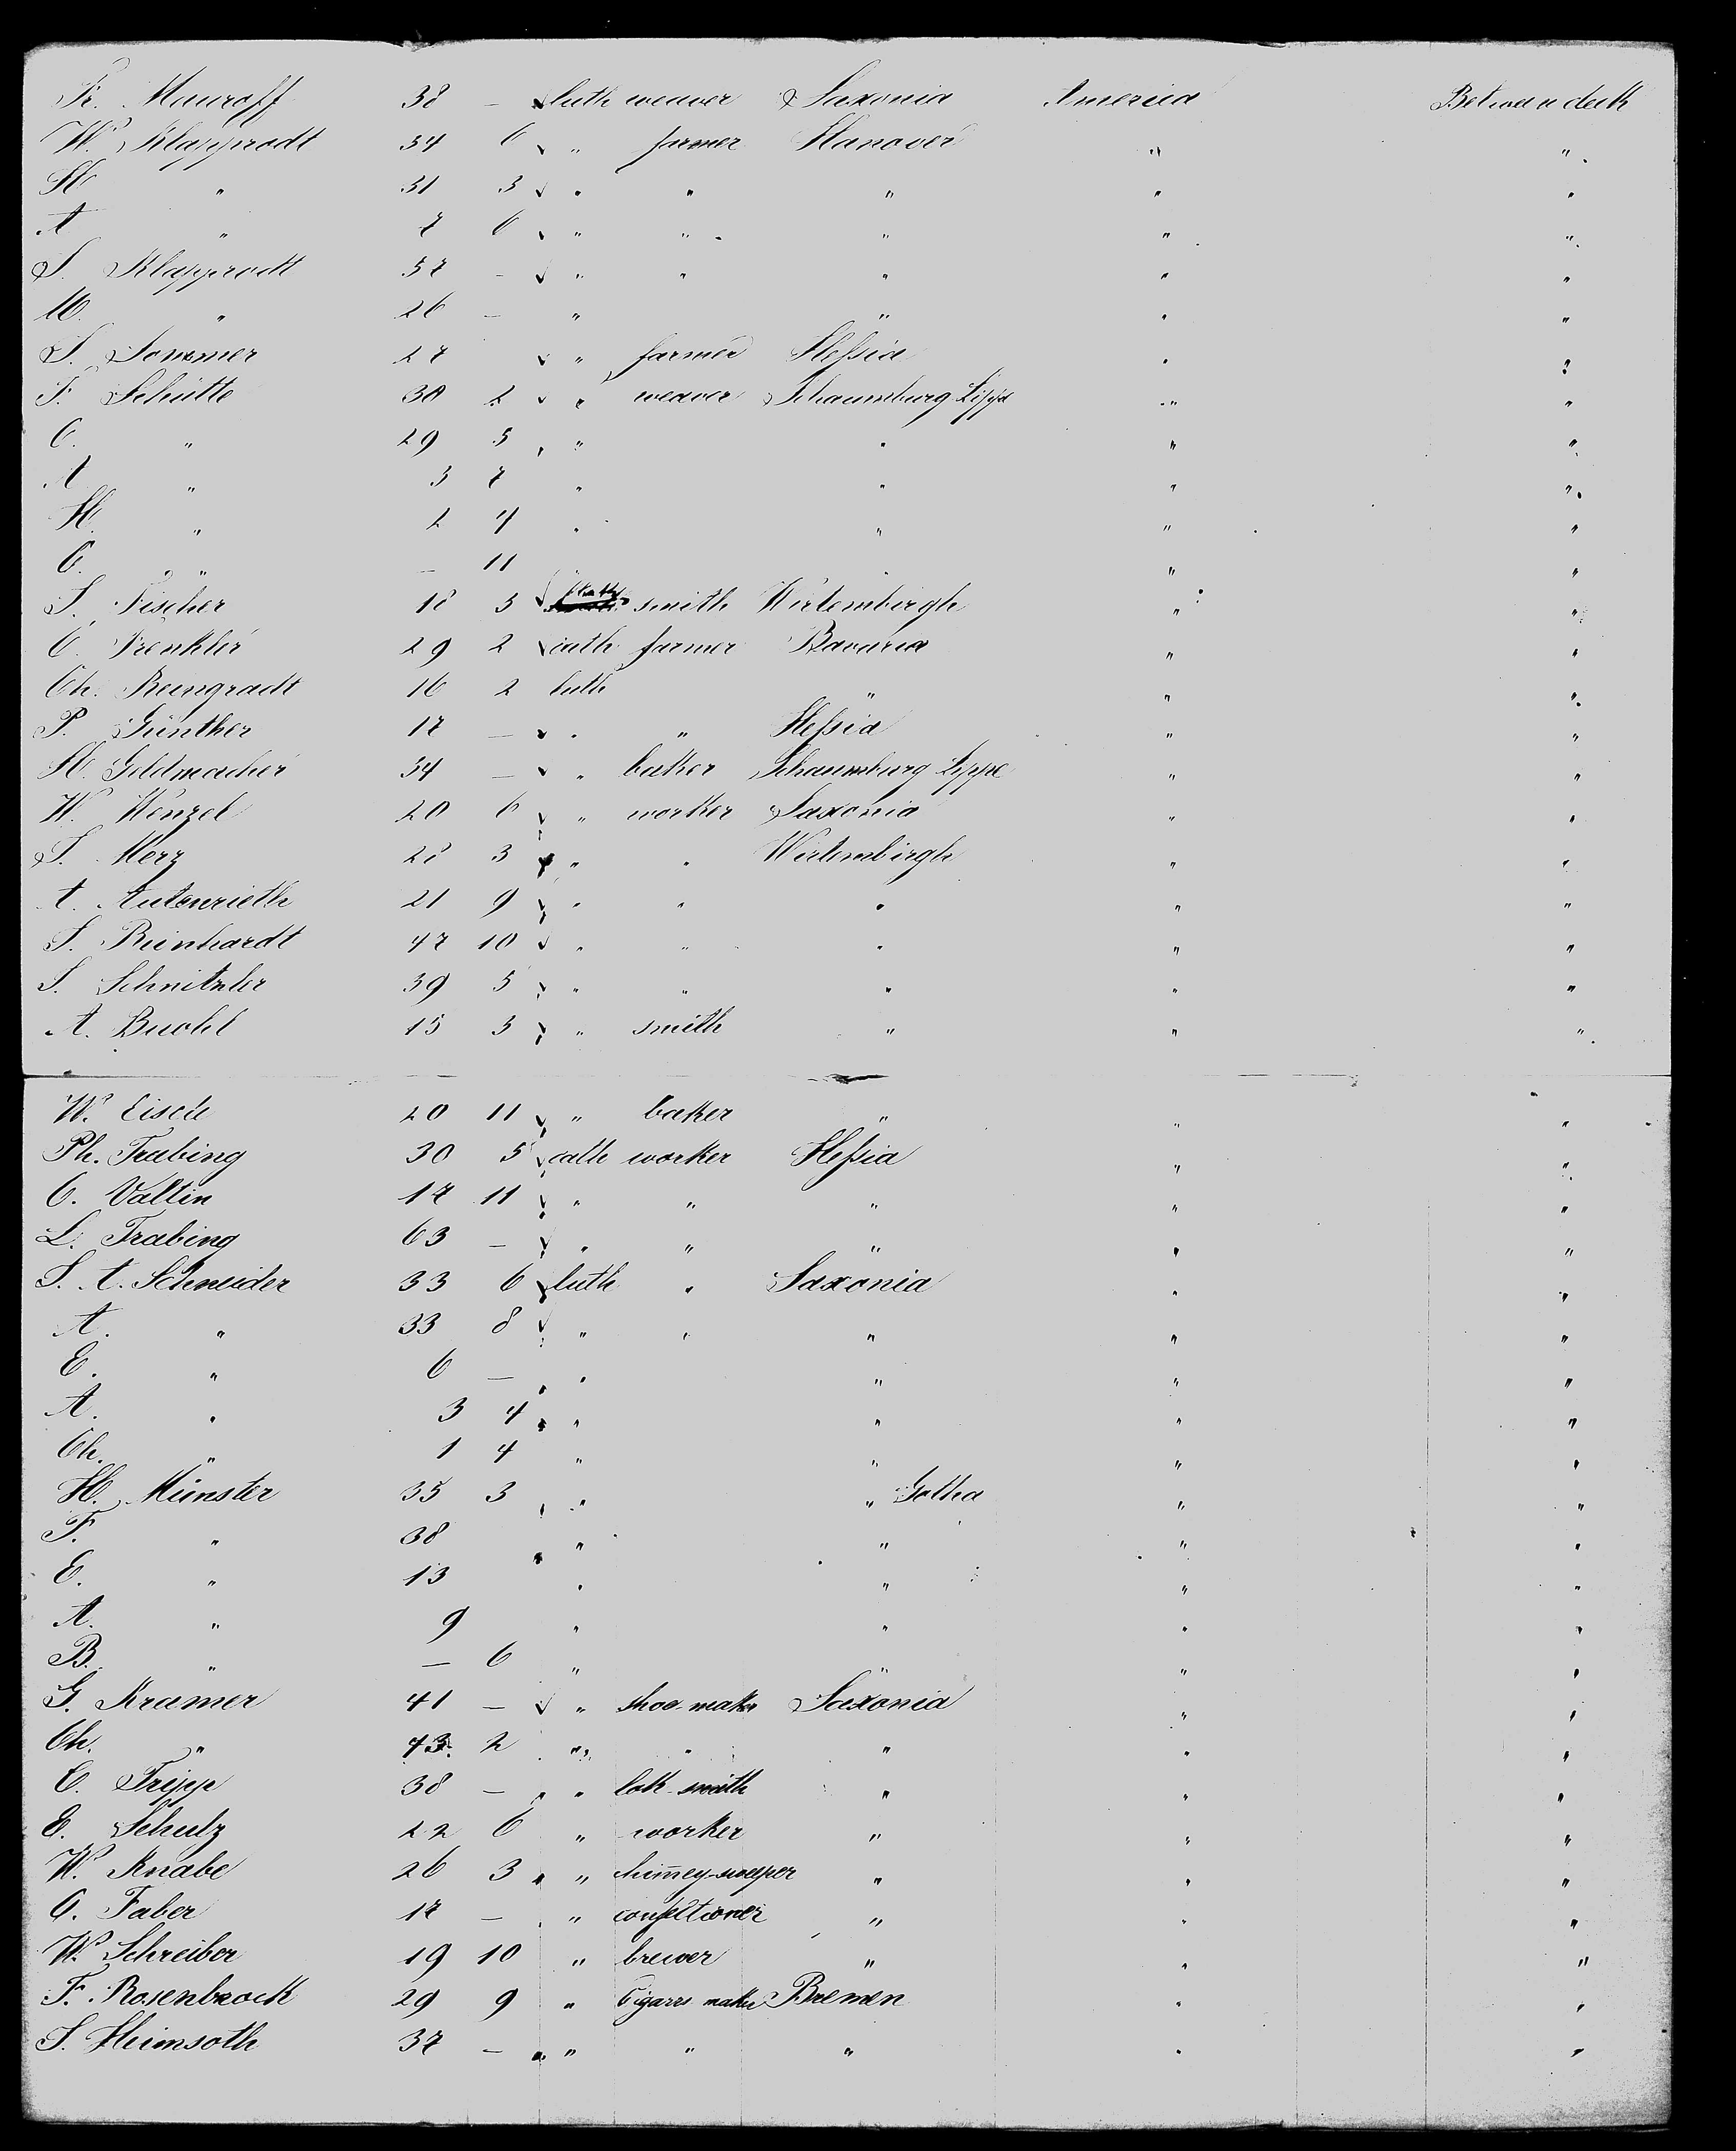 Fr. Mauroff 38 — luth weaver Saxonia America Betwen deck
W. Klapprodt 34 6 " farmer Hanover " "
H " 31 3 " " " " "
A " 7 6 " " " " "
S. Klapprodt 57 — " " " " "
M. " 26 — " " " "
S. Sommer 27 " farmer Heſsia " "
F. Schütte 30 2 " weaver Schaumburg Lippe " "
C. " 29 5 " " " "
A " 3 7 " " " "
H. " 2 4 " " " "
C. " — 11 " " "
S. Fischer 18 5 smith Wirtembirgh " "
C. Frenkler 29 2 cath farmer Bavaria " "
Ch. Reingradt 16 2 luth " " "
P. Günther 17 — " " Heſsia " "
H. Goldmacher 34 — " baker Schaumburg Lippe " "
W. Wenzel 20 6 " worker Saxonia " "
S. Merz 28 3 " " Wirtembirgh " "
A. Autenrieth 21 9 " " " " "
S. Reinhardt 47 10 " " " " "
S. Schnitzler 39 5 " " " " "
A. Buohl 15 3 " smith " " "
W. Eisele 20 11 " baker " " "
Ph. Trabing 30 5 cath worker Heſsia " "
C. Valtin 17 11 " " " " "
L. Trabing 63 — " " " " "
S. A. Schneider 33 6 luth " Saxonia " "
A. " 33 8 " " " " "
E. " 6 — " " " "
A. " 3 4 " " " "
Ch. " 1 4 " " " "
H. Münster 35 3 " " Gotha " "
F. " 38 " " " "
E. " 13 " " " "
A. " 9 " " " "
B. " — 6 " " " "
G. Kramer 41 — " shoe-maker Saxonia " "
Ch. " 43 2 " " " " "
C. Tripp 38 — " lok-smith " " "
E. Schulz 22 6 " worker " " "
W. Knabe 26 3 " chim̄ey-sweper " " "
O. Faber 17 — " confectioner " " "
W. Schreiber 19 10 " brewer " " "
F. Rosenbrock 29 9 " Cigarrs maker Bremen " "
S. Heimsoth 37 — " " " " "